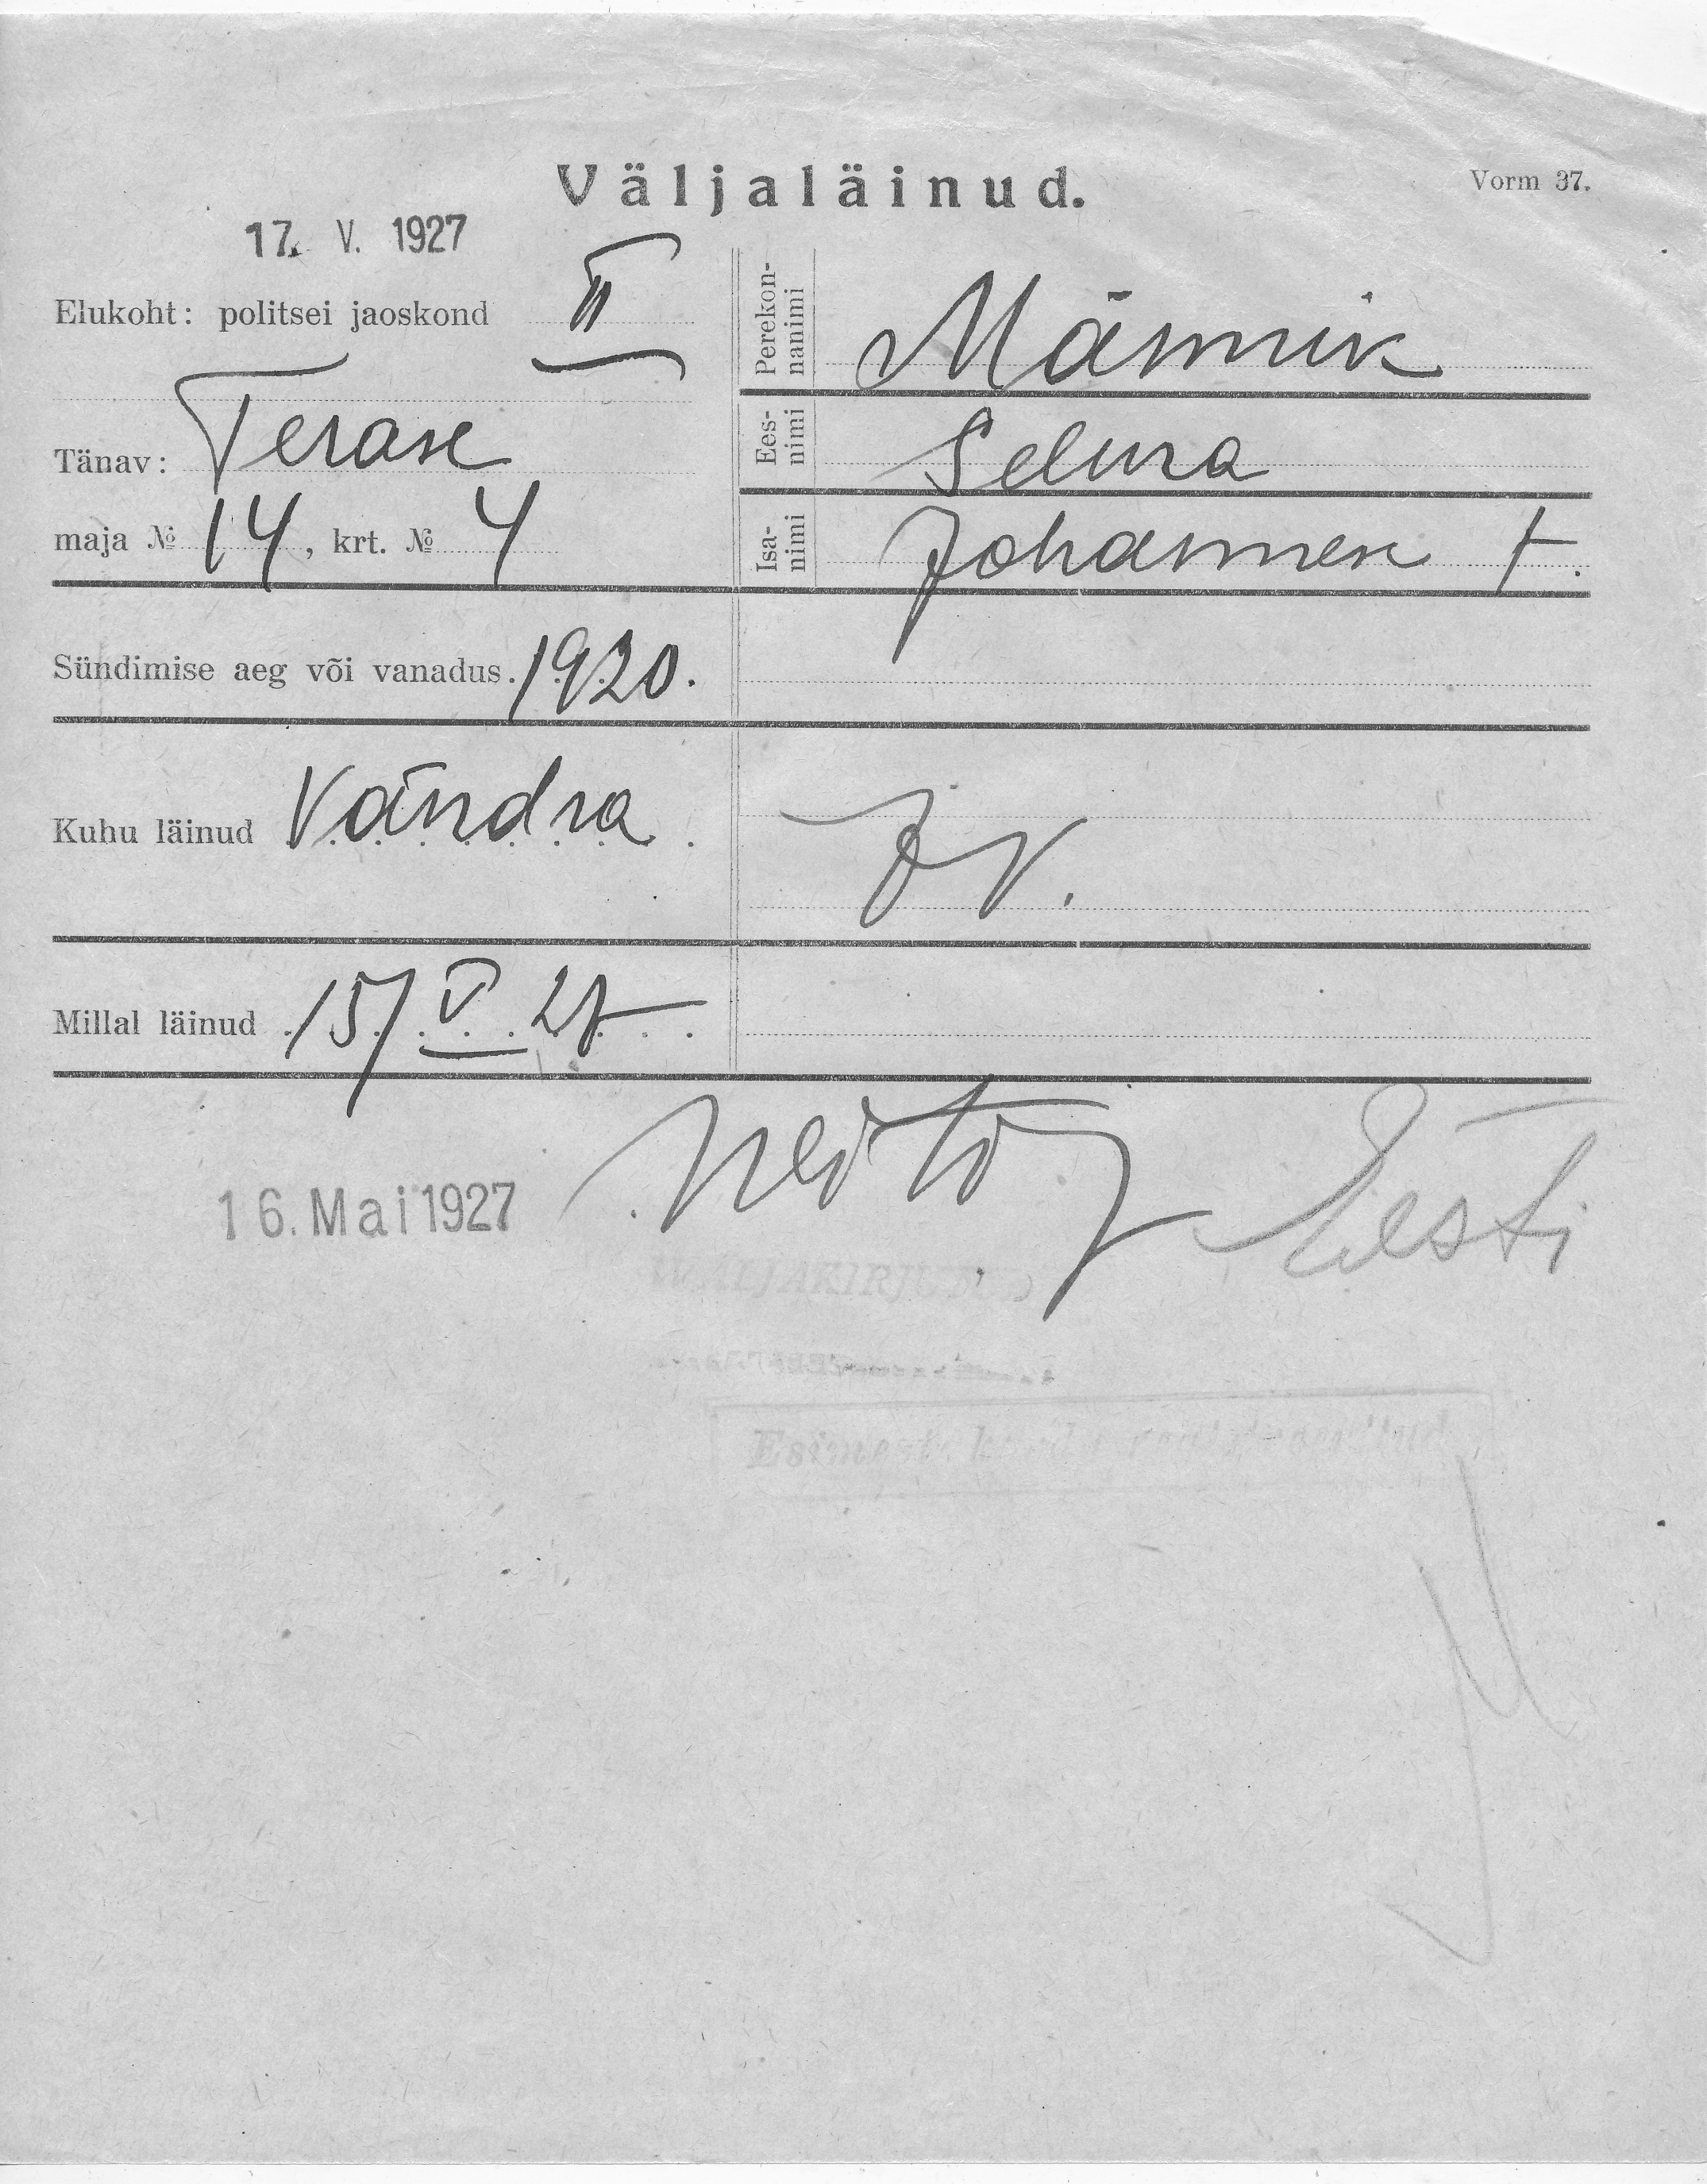 Väljaläinud.
Vorm 37.
17. V. 1927
Elukoht: politsei jaoskond II
Tänav: Terase
maja № 14, krt. № 4
Perekonnanimi Männik
Eesnimi Selma
Isanimi Johannese t.
Sündimise aeg või vanadus. 1920.
Kuhu läinud Vändra
Millal läinud 15/V 27
16. Mai 1927
Eesti
VÄLJAKIRJUTUD